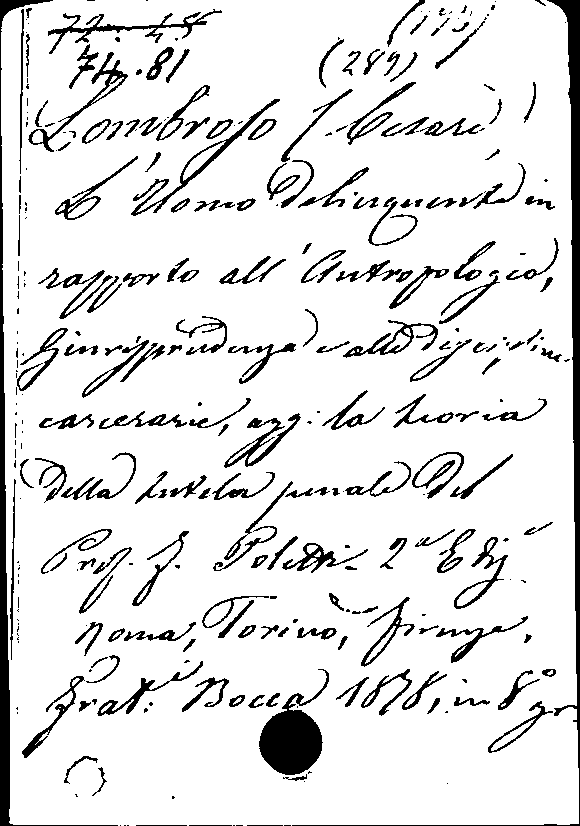 72. 45 (193)
74.81 (289)
Lombroso (Cesare)
L'Uomo delinquente in
rapporto all'Antropologia,
Giurisprudenza e alle discipline
carcerarie, agg: la teoria
della tutela penale del
Prof. F. Poletti - 2ª Ediz.e
Roma, Torino, Firenze,
Frat:i Bocca 1878, in 8º gr.